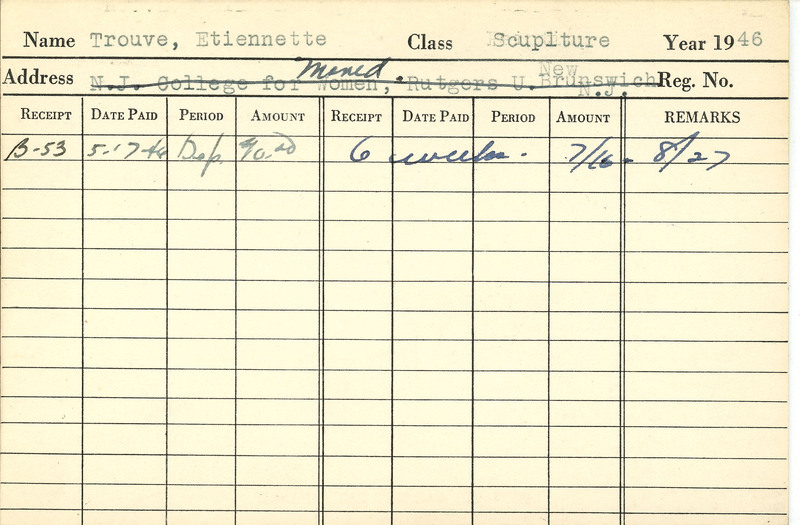 Name Trouve, Etiennette Class Scuplture Year 1946
Moved.
New
Address N.J. College for Women, Rutgers U. Brunswich Reg. No.
N.J.
RECEIPT DATE PAID PERIOD AMOUNT RECEIPT DATE PAID PERIOD AMOUNT REMARKS
B-53 5-17-46 Dep. 6 weeks. 7/16 - 8/27